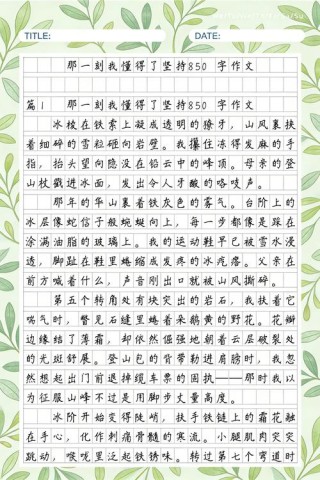 TITLE:
DATE:
那一刻我懂得了坚持850 字作文
篇1 那一刻我懂得了坚持850 字作文
冰棱在铁索上凝成透明的獠牙，山风裹挟
着细碎的雪粒砸向岩壁。我攥住冻得发麻的手
指，抬头望向隐没在铅云中的峰顶。母亲的登
山杖戳进冰面，发出令人牙酸的咯吱声。
那年的华山裹着铁灰色的雾气。台阶上的
冰层像蛇信子般蜿蜒向上，每一步都像是踩在
涂满油脂的玻璃上。我的运动鞋早已被雪水浸
透，脚趾在鞋里蜷缩成发疼的冰疙瘩。父亲在
前方喊着什么，声音刚出口就被山风撕碎。
第五个转角处有块突出的岩石，我扶着它
喘气时，瞥见石缝里蜷着朵鹅黄的野花。花瓣
边缘结了薄霜，却依然倔强地朝着云层破裂处
的光斑舒展。登山包的背带勒进肩膀时，我忽
然想起出门前退掉缆车票的固执——那时我以
为征服山峰不过是用脚步丈量高度。
冰阶开始变得陡峭，扶手铁链上的霜花融
在手心，化作刺痛骨髓的寒流。小腿肌肉突突
跳动，喉咙里泛起铁锈味。转过第七个弯道时